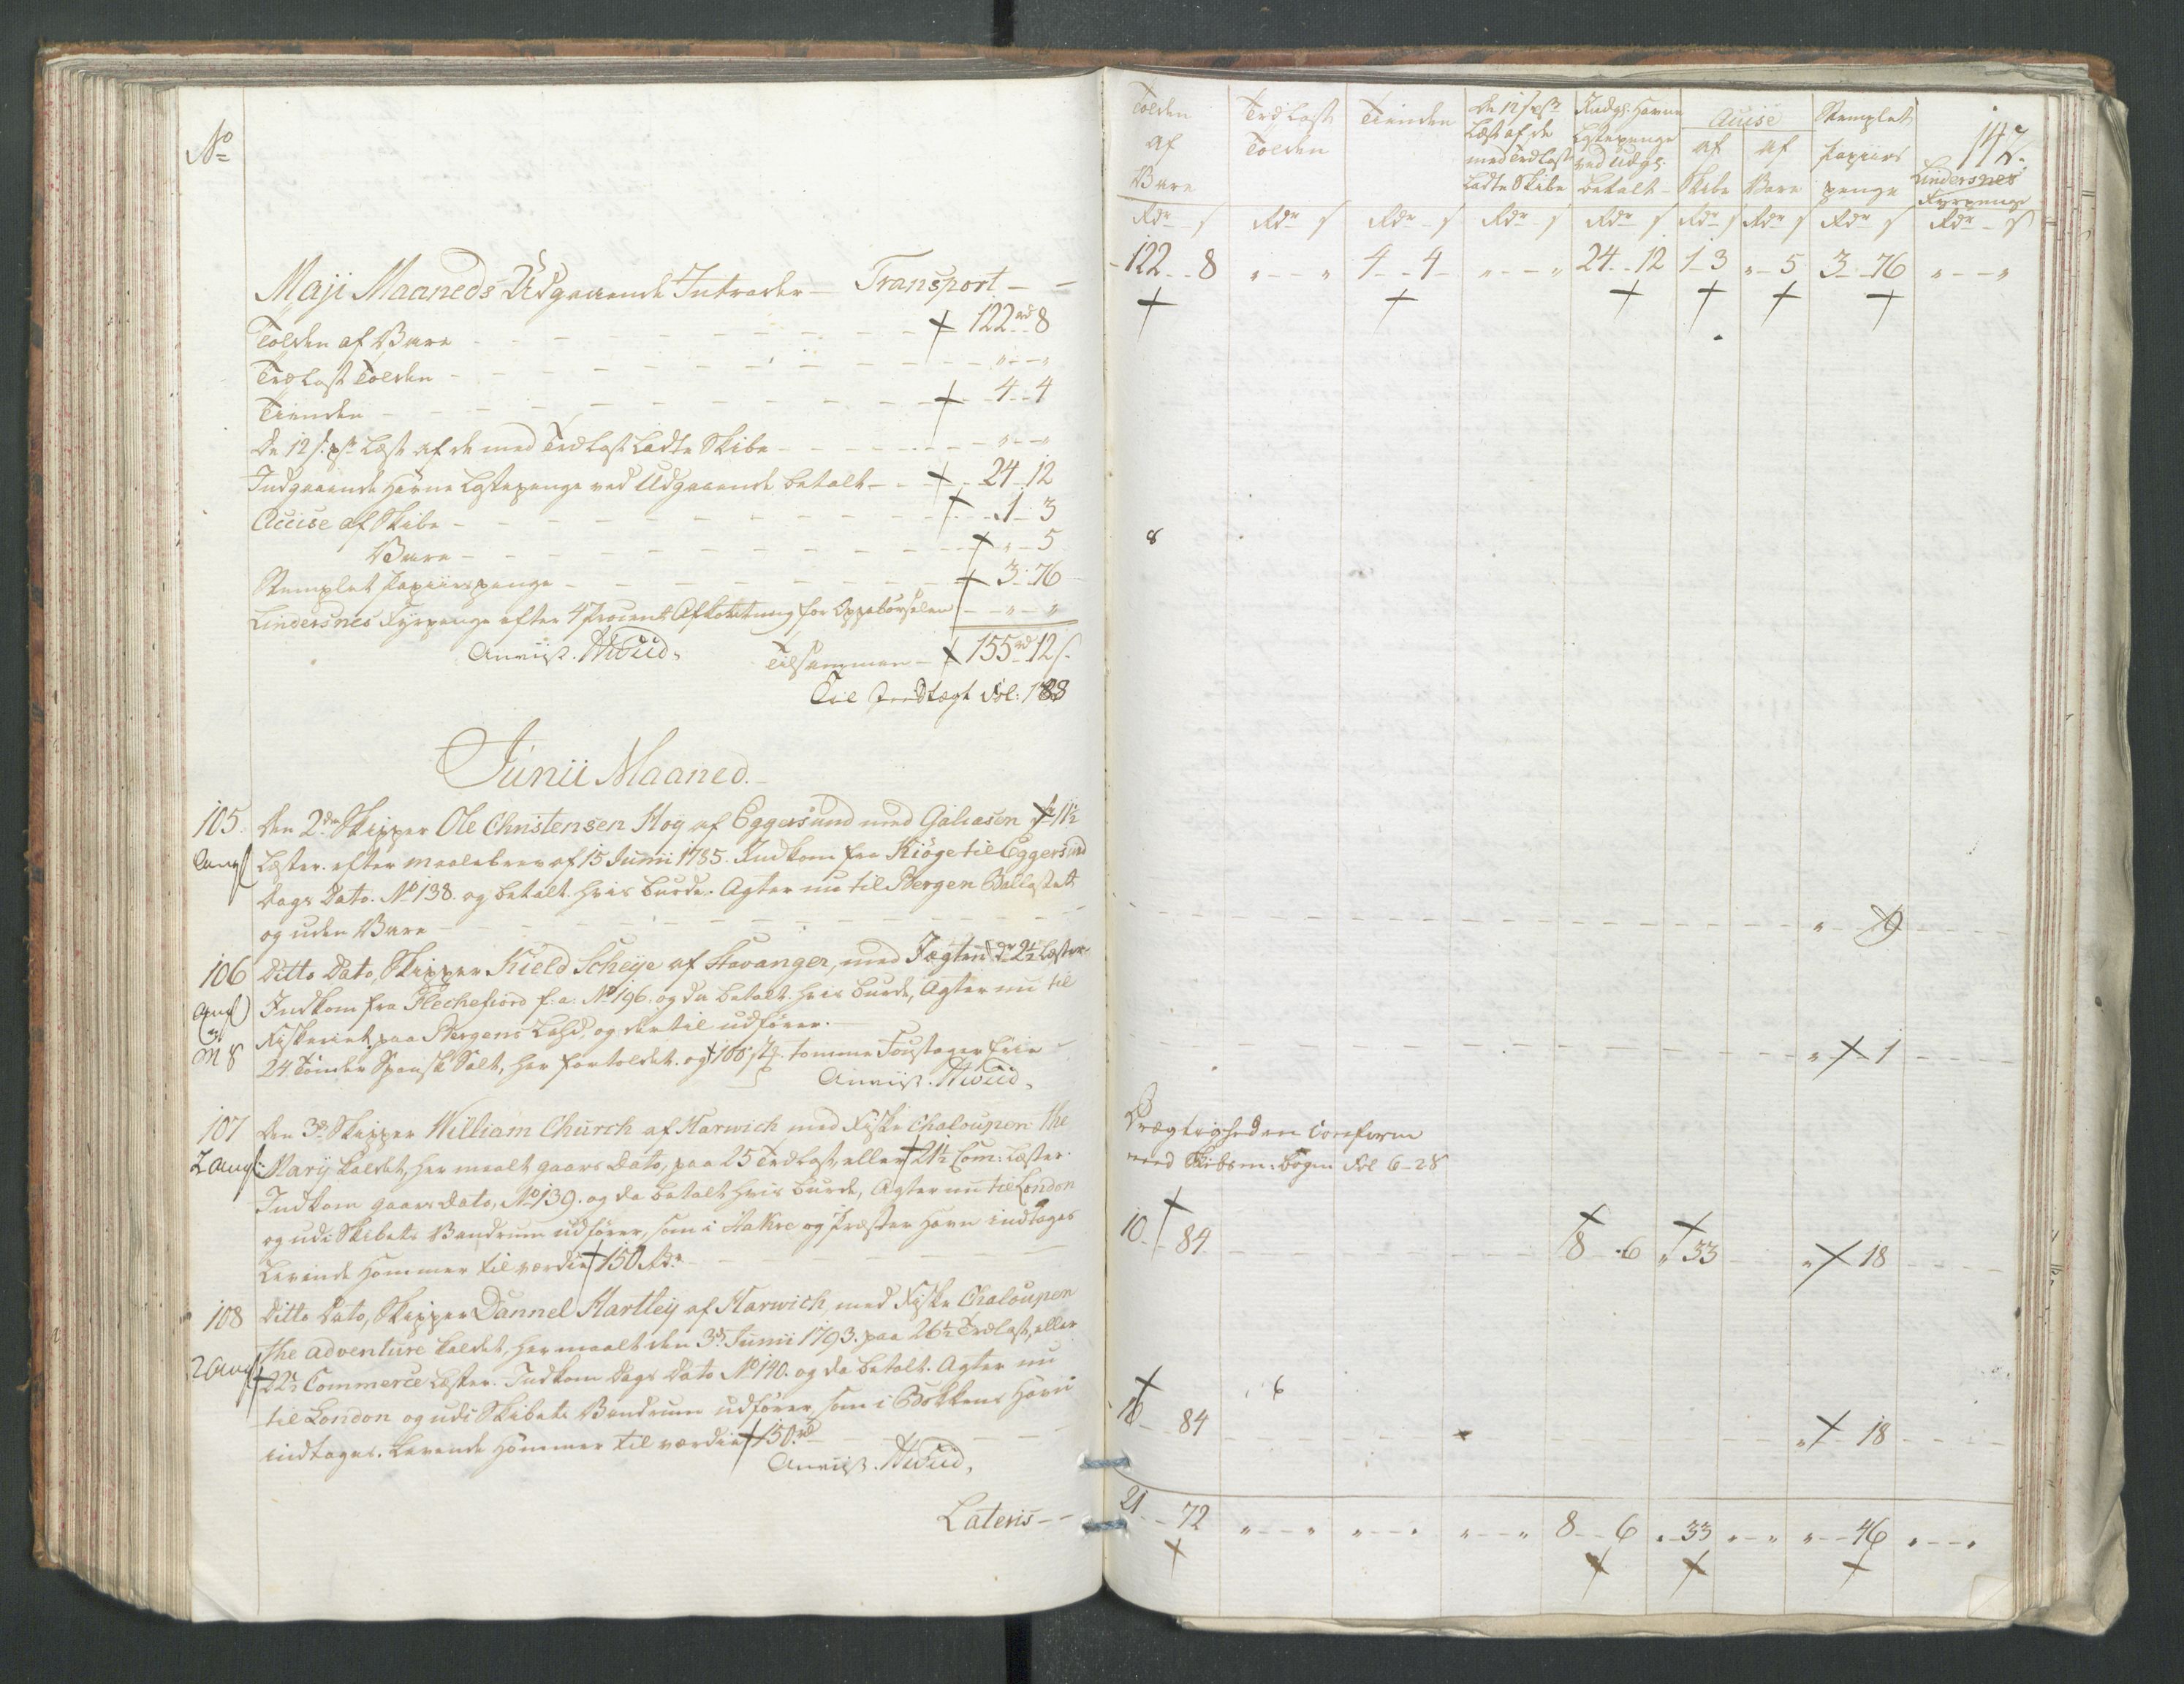 No
Maji Maaneds Udgaaende Intrader - Transport - -
Tolden af Vare - - - 122 rd 8
Trælast Tolden - - - " - - "
Tienden - - - 4 - 4
De 12 s. pr Læst af de med Trælast Ladte Skibe - - - " - - "
Indgaaende Havne Lastepenge ved Udgaaende betalt - - 24 - 12
Accise af Skibe - - - 1 - 3
Vare - - - " - 5
Stemplet Papiirspenge - - - 3 - 76
Lindersnes Fyrpenge efter 4 Procents Afkortning for Oppebørselen - - " - "
Anviist. Hwiid. Tilsammen - 155 rd 12 s.
Til Indtægt Fol: 188
Junii Maaned.
105. Den 2den Skipper Ole Christensen Hoÿ af Eggersund med Galiasen dr 11½
Læster. efter maalebrev af 15 Junii 1785. Indkom fra Kiöge til Eggersund
Dags Dato. No 138. og betalt hvis burde. Agter nu til Bergen Ballastet
og uden Vare - - -
106 Ditto Dato, Skipper Kield Scheÿe af Stavanger, med Jægten dr 2½ Læster.
Indkom fra Flechefiord f: a: No 196. og da betalt hvis burde, Agter nu til
Fiskeriet paa Bergens Leed, og dertil udfører.
24 Tönder Spansk Salt, her fortoldet. og 100 stk. tomme Foustager frie
Anviist. Hwiid.
107 Den 3de Skipper William Church af Harwich med Fiske Chaloupen the
Marÿ kaldet, her maalt gaars Dato, paa 25 Trælast, eller 21½ Com: Læster.
Indkom gaars Dato, No 139. og da betalt hvis burde, Agter nu til London
og udi Skibets Vandrum udfører, som i Rakke og Præster Havn indtages
Levende Hommer til værdie 150 Rdr. - - -
108 Ditto Dato, Skipper Dannel Hartleÿ af Harwich, med Fiske Chaloupen
the adventure kaldet, her maalt den 3de Junii 1793. paa 26½ Trælast, eller
22½ Commerce Læster. Indkom Dags Dato No 140. og da betalt. Agter nu
til London og udi Skibets Vandrum udfører, som i Bokkens Havn
indtages. Levende Hommer til værdie 150 rd - - -
Anviist. Hwiid.
Lateris - -
147.
Tolden af Vare
Trælast Tolden
Tienden
De 12 s pr Læst af de med Trælast Ladte Skibe
Indg: Havne Lastepenge ved Udg: betalt -
Accise
af Skibe
af Vare
Stemplet Papiirs penge
Lindersnes Fyrpenge
Rdr s Rdr s Rdr s Rdr s Rdr s Rdr s Rdr s Rdr s Rdr s
122 - 8 " - - " 4 - 4 " - - " 24 - 12 1 - 3 " - 5 3 - 76 " - - "
8
" - 9
" - 1
Drægtigheden conform
med Skibsm: bogen Fol 6 - 28
10 - 84 8 - 6 " 33 " - 18
6
10 - 84 " - 18
21 - 72 " - - " " - - " " - - " 8 - 6 " 33 " - - " " - 46 " - - "